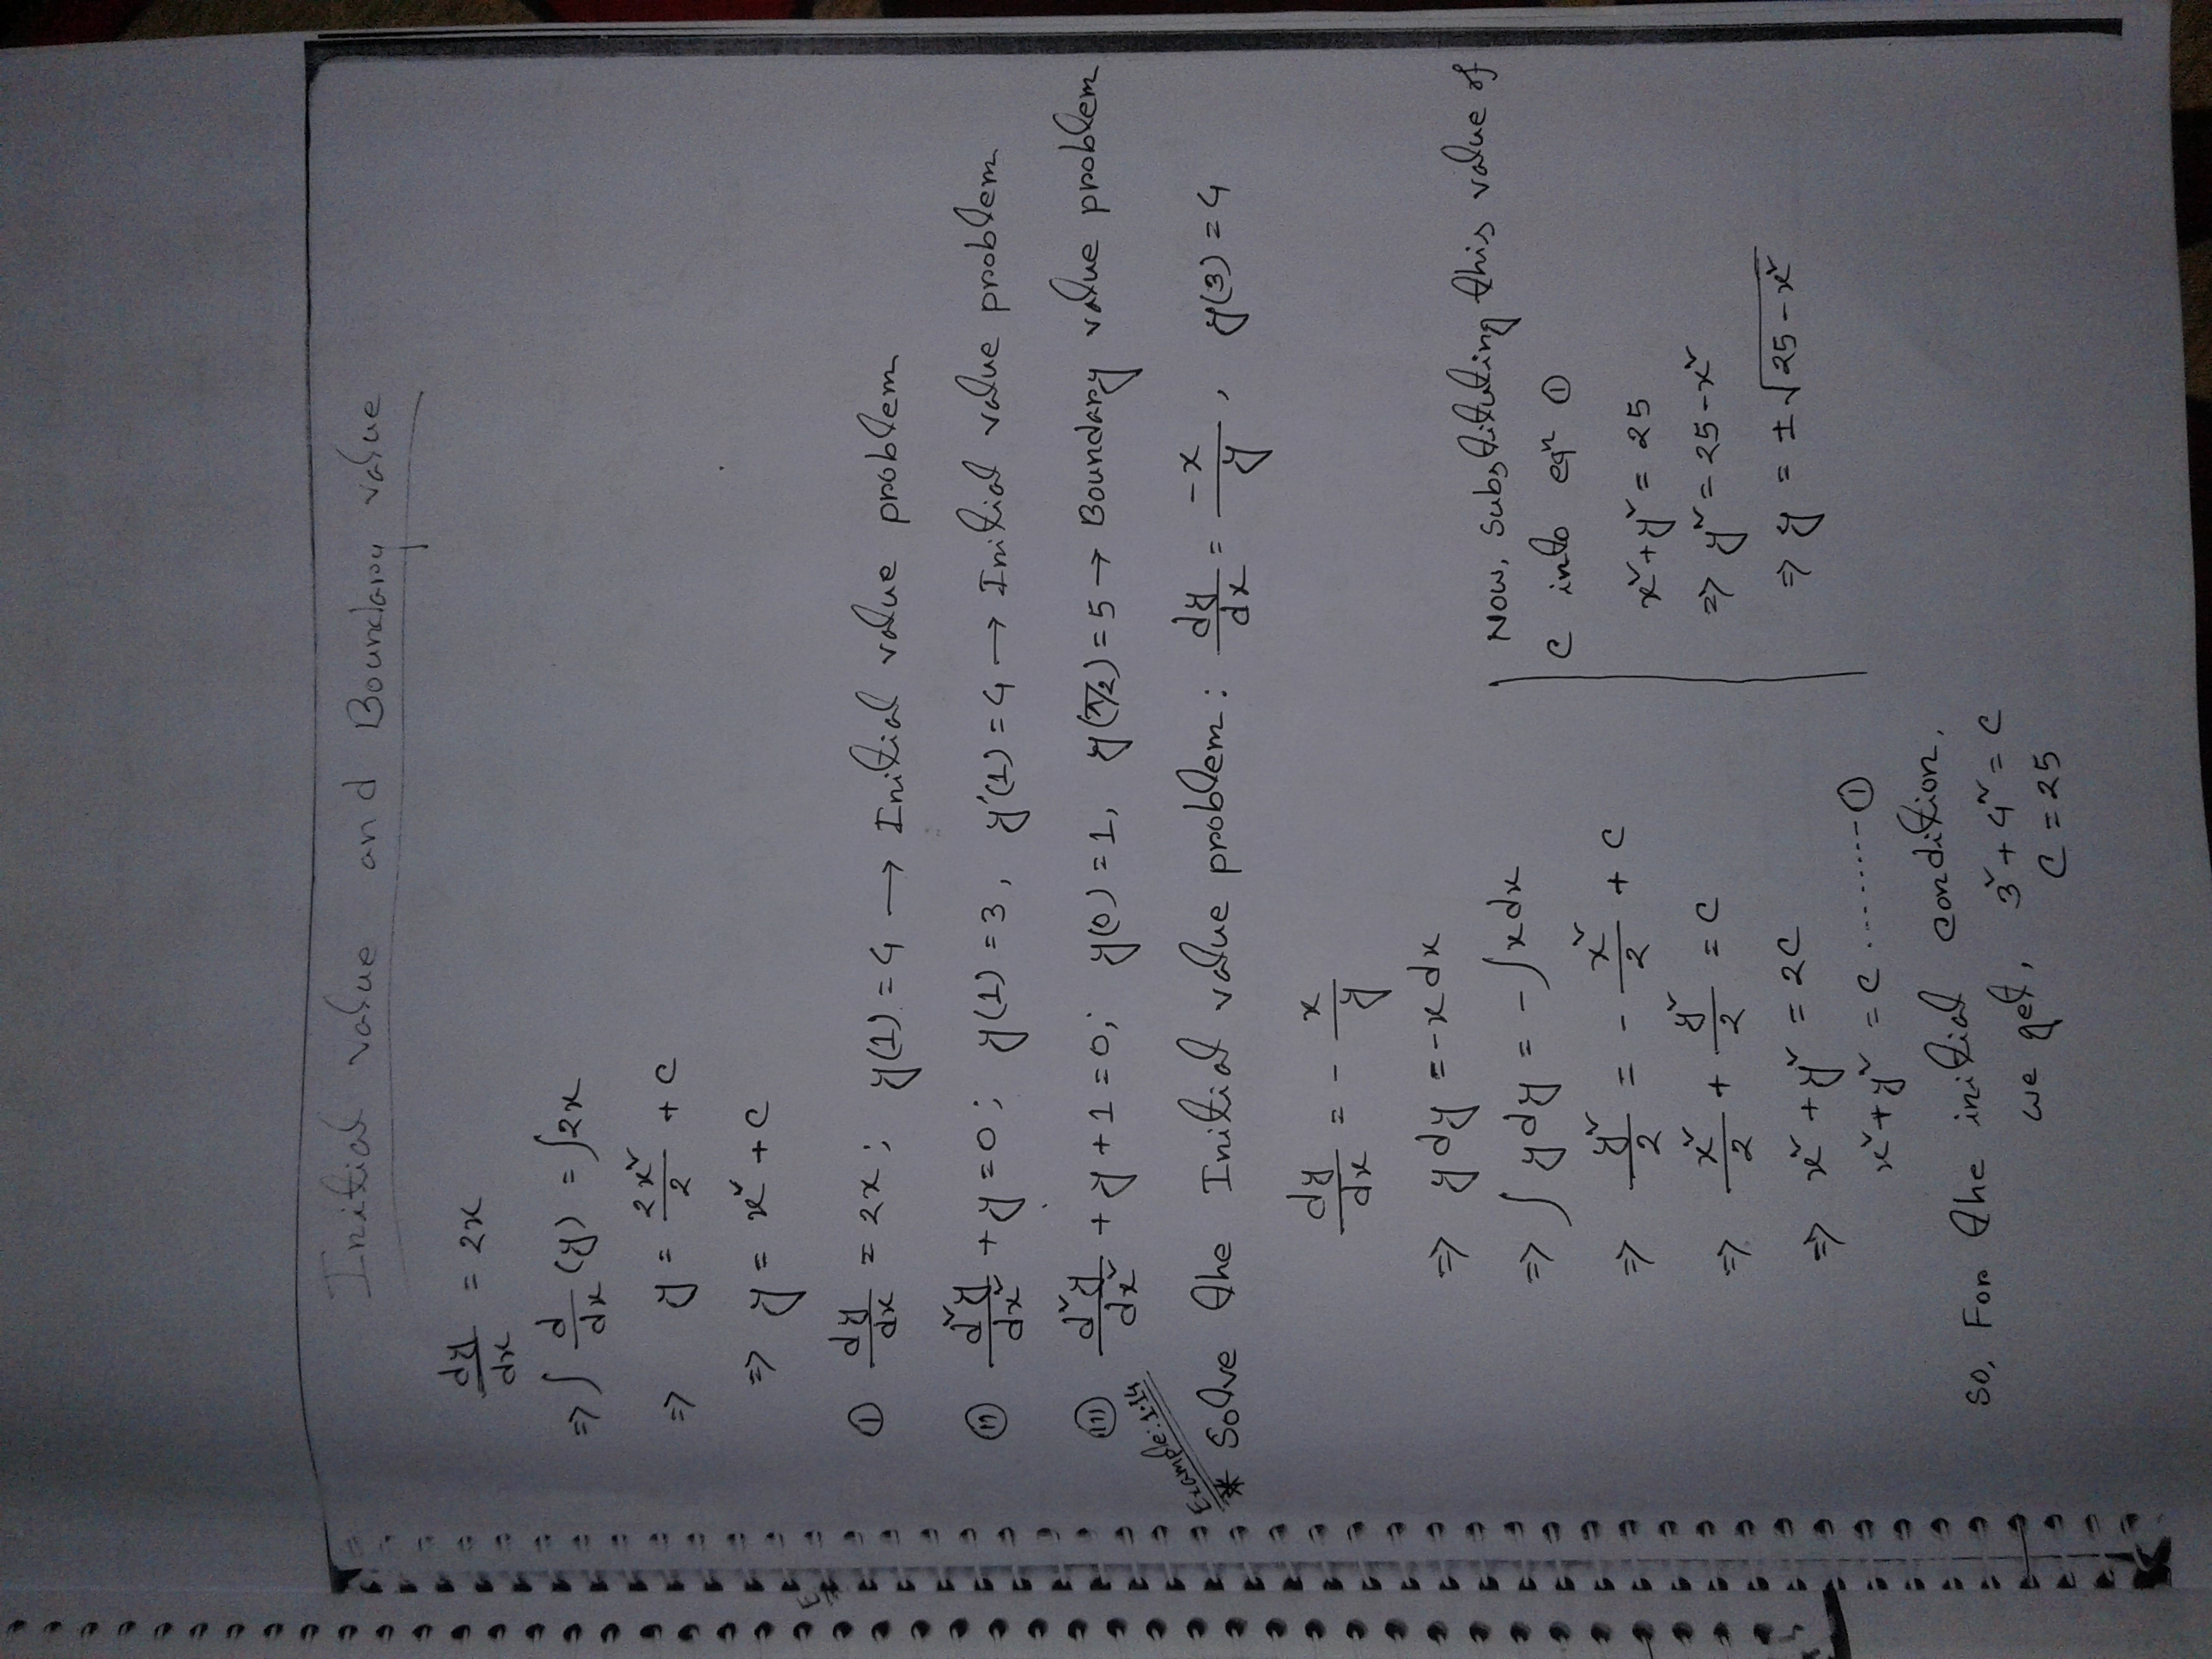 Initial value and Boundary value
dy/dx = 2x
⇒ ∫ d/dx (y) = ∫2x
⇒ y = 2x²/2 + c
⇒ y = x² + c
① dy/dx = 2x; y(1) = 4 → Initial value problem
⑪ d²y/dx² + y = 0; y(1) = 3, y'(1) = 4 → Initial value problem
(111) d²y/dx² + y + 1 = 0; y(0) = 1, y(π/2) = 5 → Boundary value problem
Example: 1.14
* Solve the Initial value problem: dy/dx = -x/y, y(3) = 4
dy/dx = - x/y
⇒ y dy = -x dx
⇒ ∫ y dy = - ∫ x dx
⇒ y²/2 = - x²/2 + c
⇒ x²/2 + y²/2 = c
⇒ x² + y² = 2c
x² + y² = c ........ ①
So, For the initial condition,
we get, 3² + 4² = c
c = 25
Now, Substituting this value of
c into eqⁿ ①
x² + y² = 25
⇒ y² = 25 - x²
⇒ y = ± √(25 - x²)